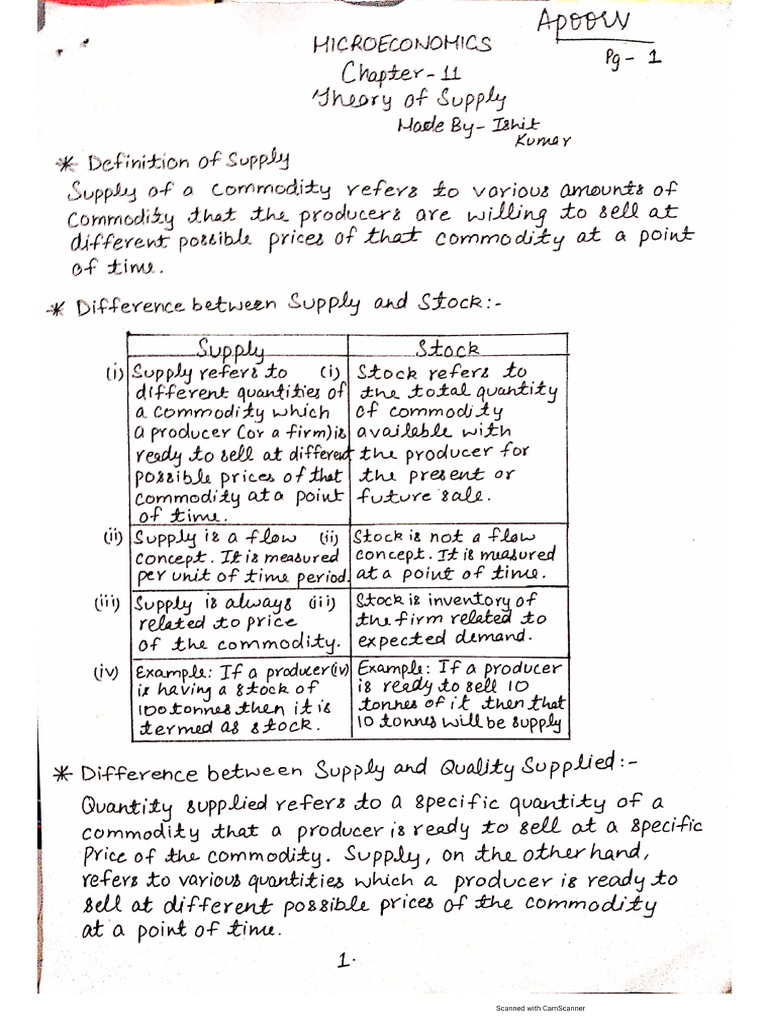 Apoorv
Pg- 1
MICROECONOMICS
Chapter-11
Theory of Supply
Made By- Ishit
Kumar
* Definition of Supply
Supply of a commodity refers to various amounts of
commodity that the producers are willing to sell at
different possible prices of that commodity at a point
of time.
* Difference between Supply and Stock:-
Supply
(i) Supply refers to
different quantities of
a commodity which
a producer (or a firm) is
ready to sell at different
possible prices of that
commodity at a point
of time.
(ii) Supply is a flow
concept. It is measured
per unit of time period.
(iii) Supply is always
related to price
of the commodity.
(iv) Example: If a producer
is having a stock of
100 tonnes then it is
termed as stock.
Stock
(i) Stock refers to
the total quantity
of commodity
available with
the producer for
the present or
future sale.
(ii) Stock is not a flow
concept. It is measured
at a point of time.
(iii) Stock is inventory of
the firm related to
expected demand.
(iv) Example: If a producer
is ready to sell 10
tonnes of it then that
10 tonnes will be supply
* Difference between Supply and Quality Supplied:-
Quantity supplied refers to a specific quantity of a
commodity that a producer is ready to sell at a specific
Price of the commodity. Supply, on the other hand,
refers to various quantities which a producer is ready to
sell at different possible prices of the commodity
at a point of time.
1.
Scanned with CamScanner